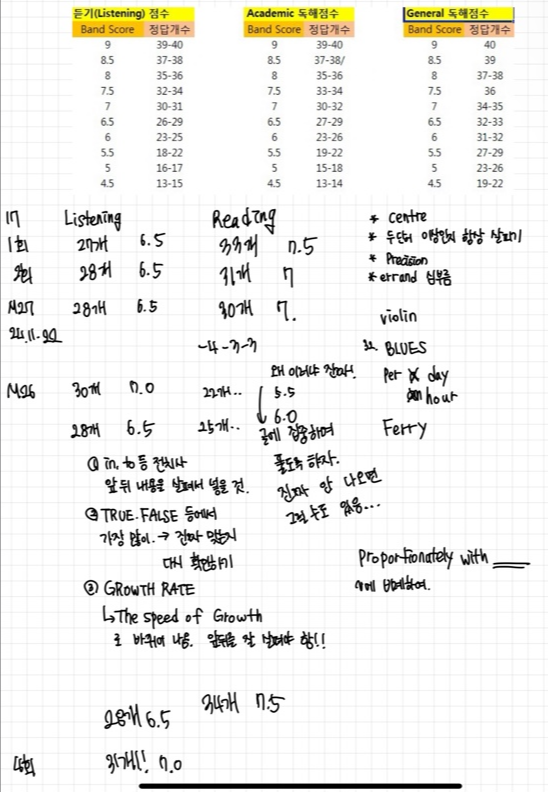 듣기(Listening) 점수
Band Score 정답개수
9 39-40
8.5 37-38
8 35-36
7.5 32-34
7 30-31
6.5 26-29
6 23-25
5.5 18-22
5 16-17
4.5 13-15
Academic 독해점수
Band Score 정답개수
9 39-40
8.5 37-38/
8 35-36
7.5 33-34
7 30-32
6.5 27-29
6 23-26
5.5 19-22
5 15-18
4.5 13-14
General 독해점수
Band Score 정답개수
9 40
8.5 39
8 37-38
7.5 36
7 34-35
6.5 32-33
6 31-32
5.5 27-29
5 23-26
4.5 19-22
17 Listening Reading
1회 27개 6.5 33개 7.5
2회 28개 6.5 31개 7
M27 28개 6.5 30개 7.
24.11.22
-4-3-3
* centre
* 두단어 이상인지 항상 살피기
* Precision
* errand 심부름
violin
32. BLUES
Per day
hour
Ferry
M26 30개 7.0 22개.. 5.5
28개 6.5 25개.. 6.0
왜 이러냐 진짜!
글에 집중하며
풀도록 하자.
진짜 안 나오면
그럴 수도 있음...
① in, to 등 전치사
앞뒤 내용을 살펴서 넣을 것.
② TRUE. FALSE 등에서
가장 많이. → 진짜 맞는지
다시 확인하기
③ GROWTH RATE
↳ The speed of Growth
로 바뀌어 나옴. 앞뒤를 잘 살펴야 함!!
Proportionately with ___
에 비례하여.
28개 6.5 34개 7.5
4회 31개! 7.0